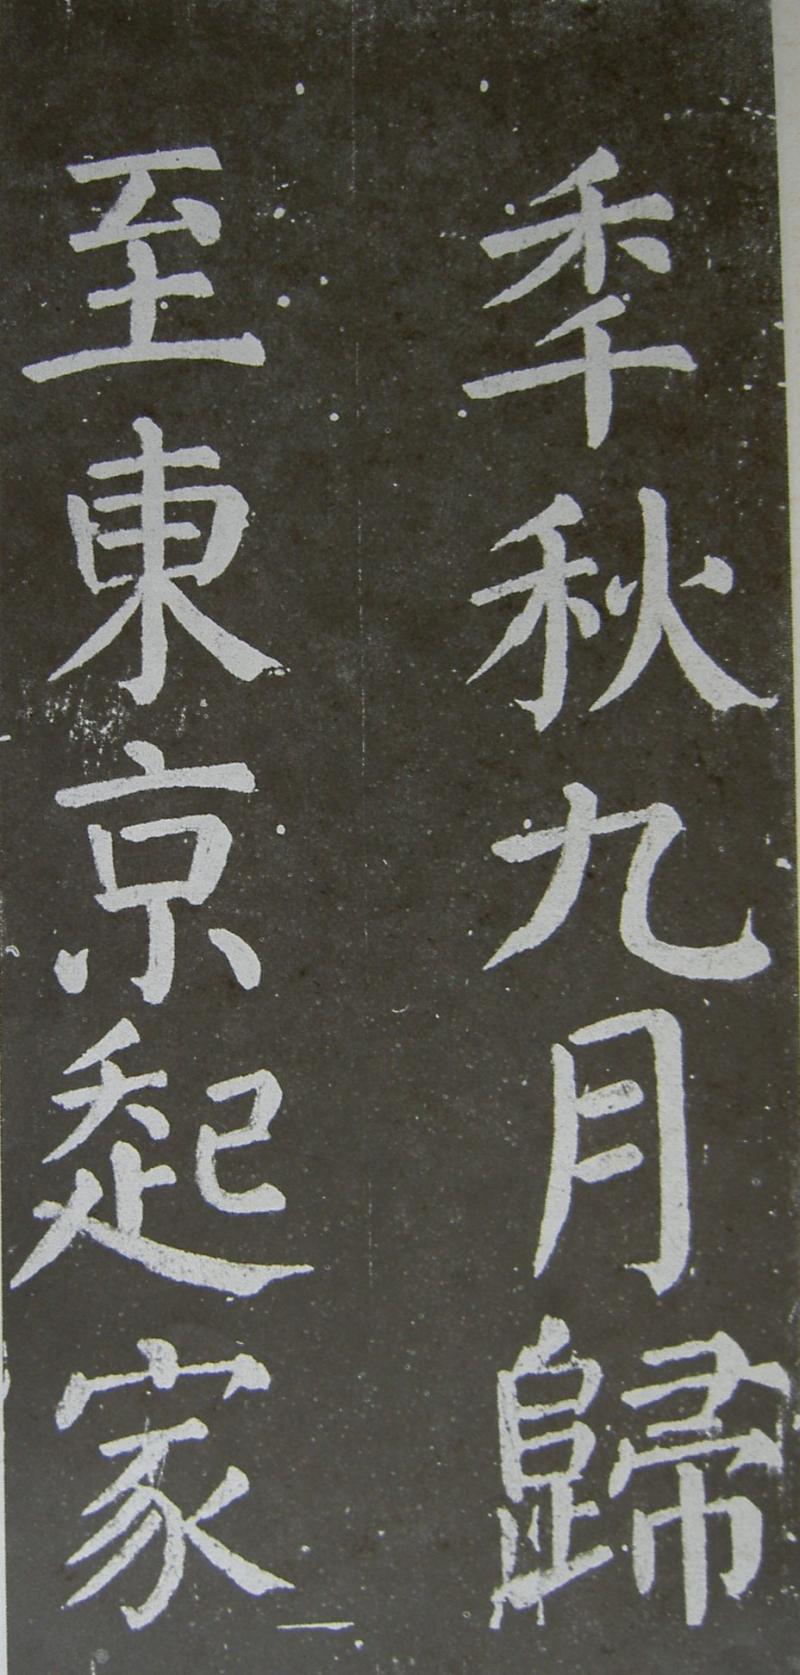 秊秋九月歸
至東京起家